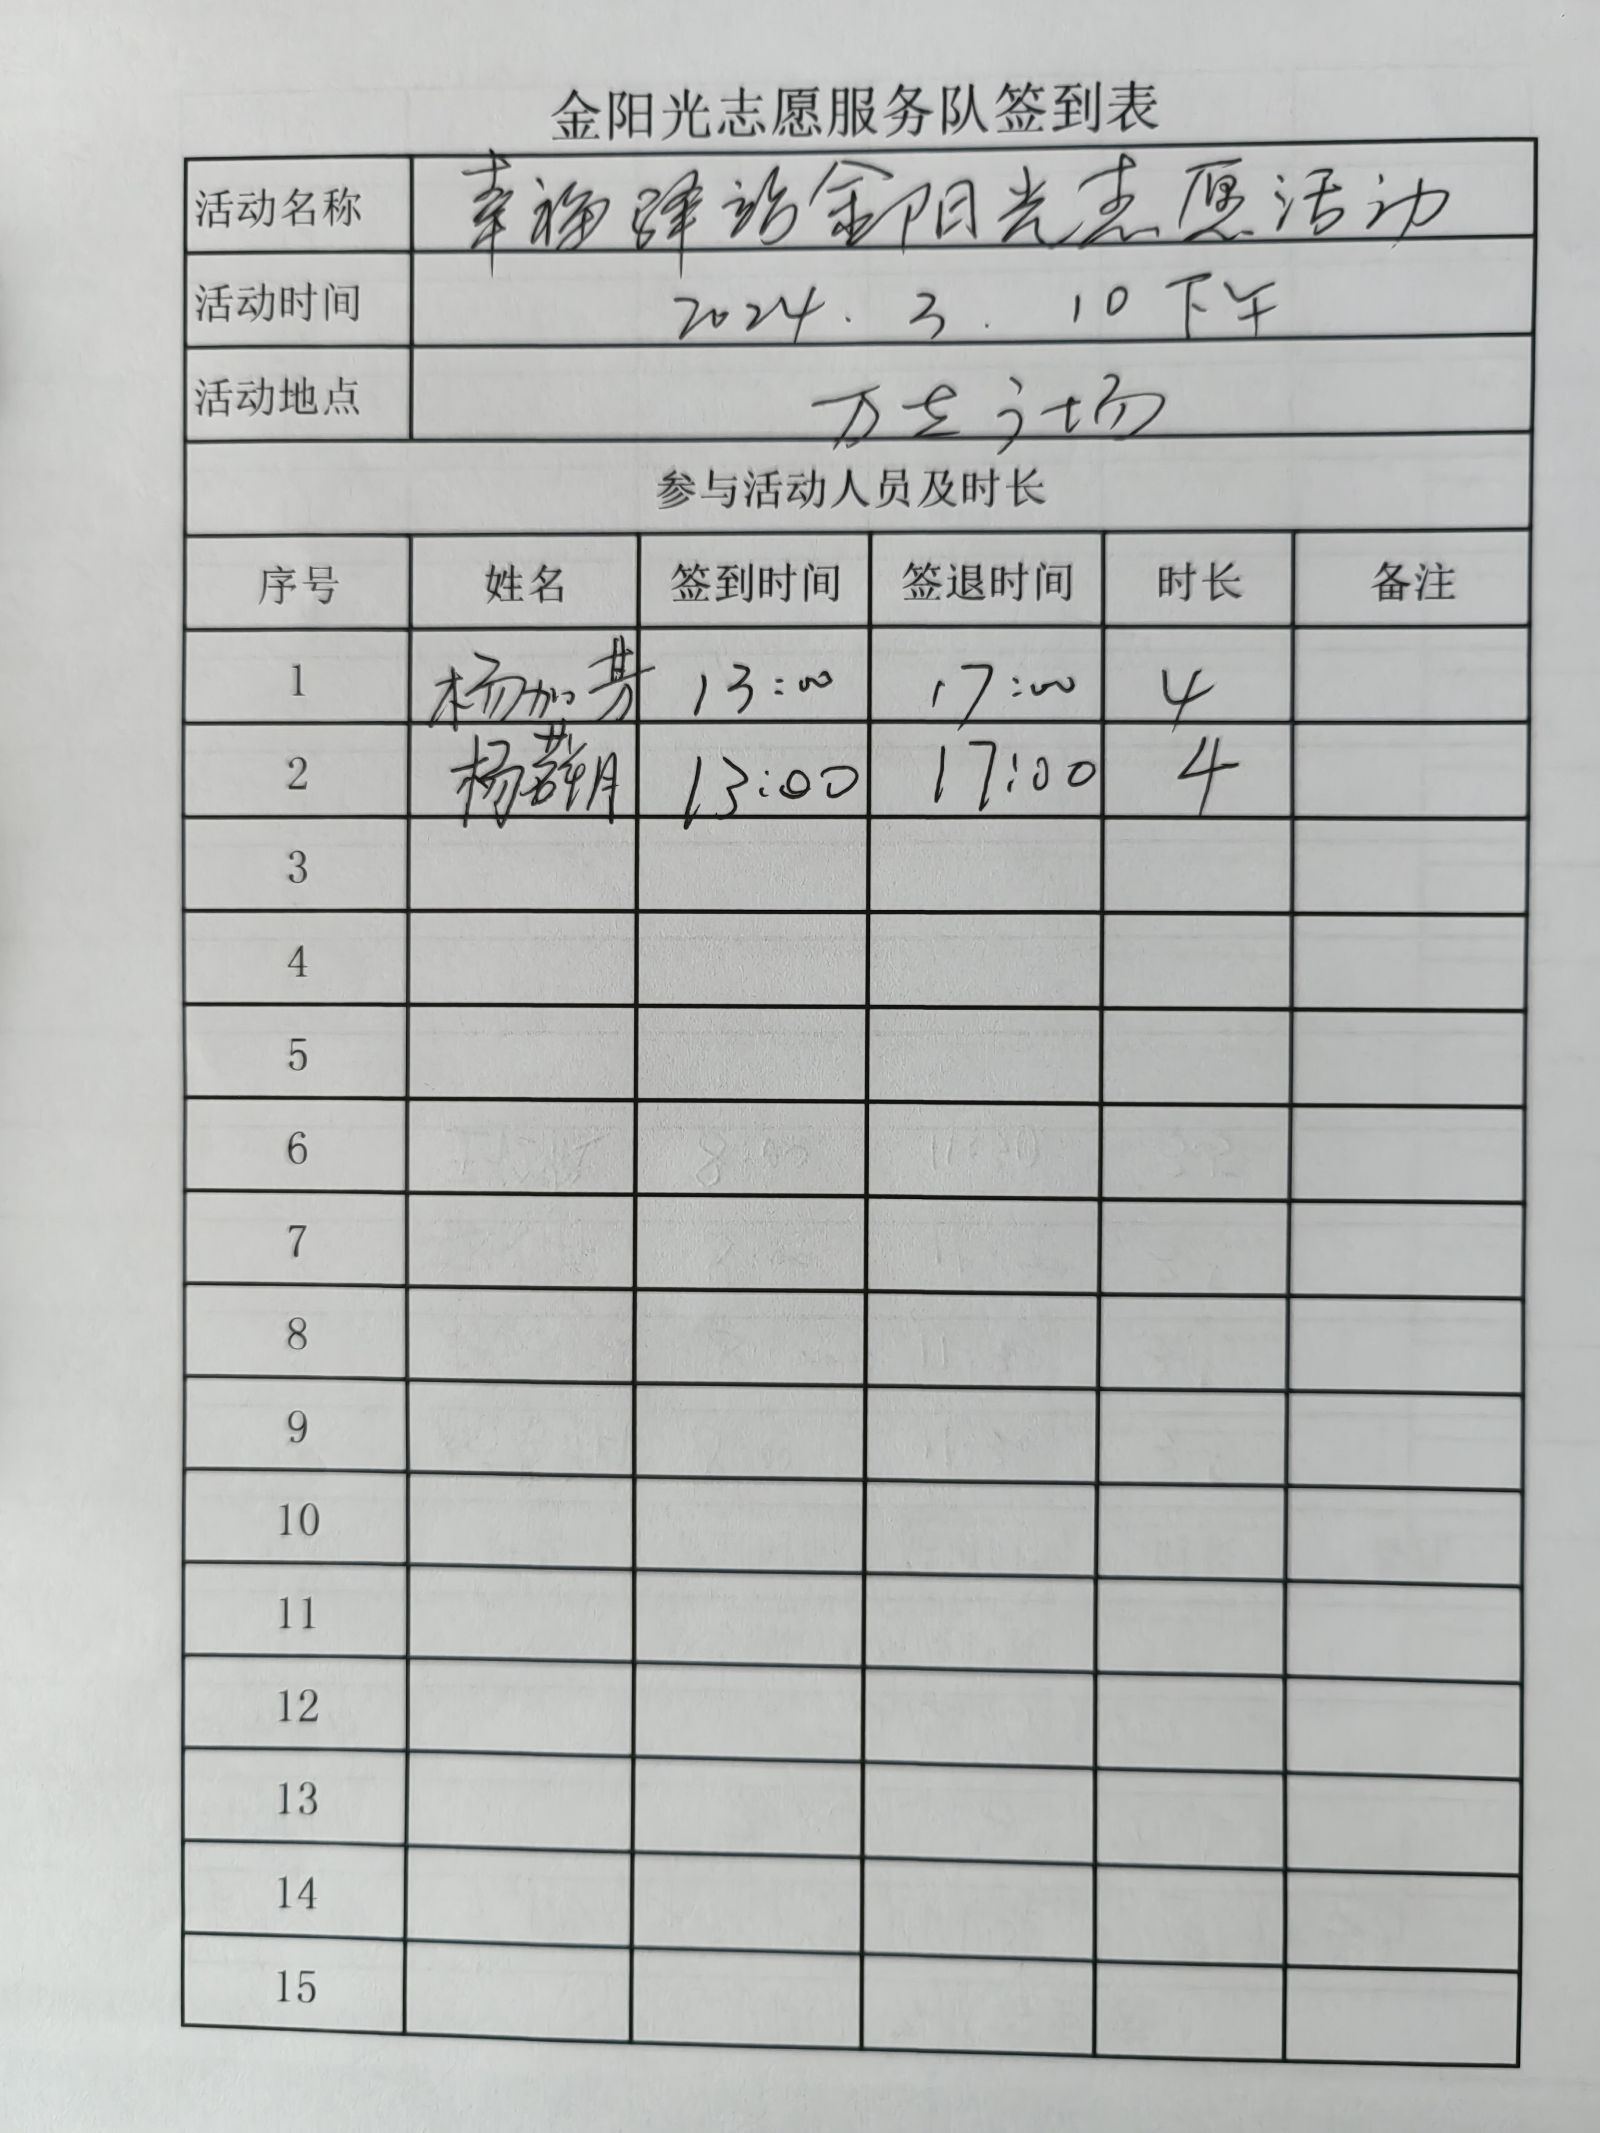 金阳光志愿服务队签到表
活动名称 幸福驿站金阳光志愿活动
活动时间 2024.3.10下午
活动地点 万达广场
参与活动人员及时长
序号 姓名 签到时间 签退时间 时长 备注
1 杨加芳 13:00 17:00 4
2 杨 13:00 17:00 4
3
4
5
6
7
8
9
10
11
12
13
14
15